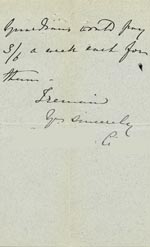 Guardians could pay
3/6 a week each for
them.
I remain
Yrs sincerely
C